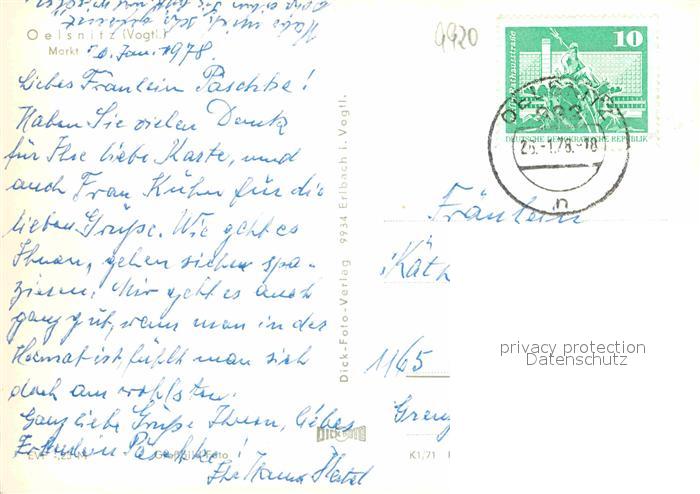 Oelsnitz (Vogtl.)
Markt
Jan. 1978.
Liebes Fräulein Paschke!
Haben Sie vielen Dank
für Ihre liebe Karte, und
auch Frau Kühn für die
lieben Grüße. Wie geht es
Ihnen, gehen sicher spa-
zieren. Mir geht es auch
ganz gut, wenn man in der
Heimat ist, fühlt man sich
doch am wohlsten.
Ganz liebe Grüße Ihnen, liebes
Fräulein Paschke!
Ihre Hanna
Dick-Foto-Verlag 9934 Erlbach i. Vogtl.
Dick
Foto
K1/71
9920
Rathausstraße
10
DEUTSCHE DEMOKRATISCHE REPUBLIK
-1.78.-18
n
Fräulein
Käth
1165
Grenz
privacy protection
Datenschutz